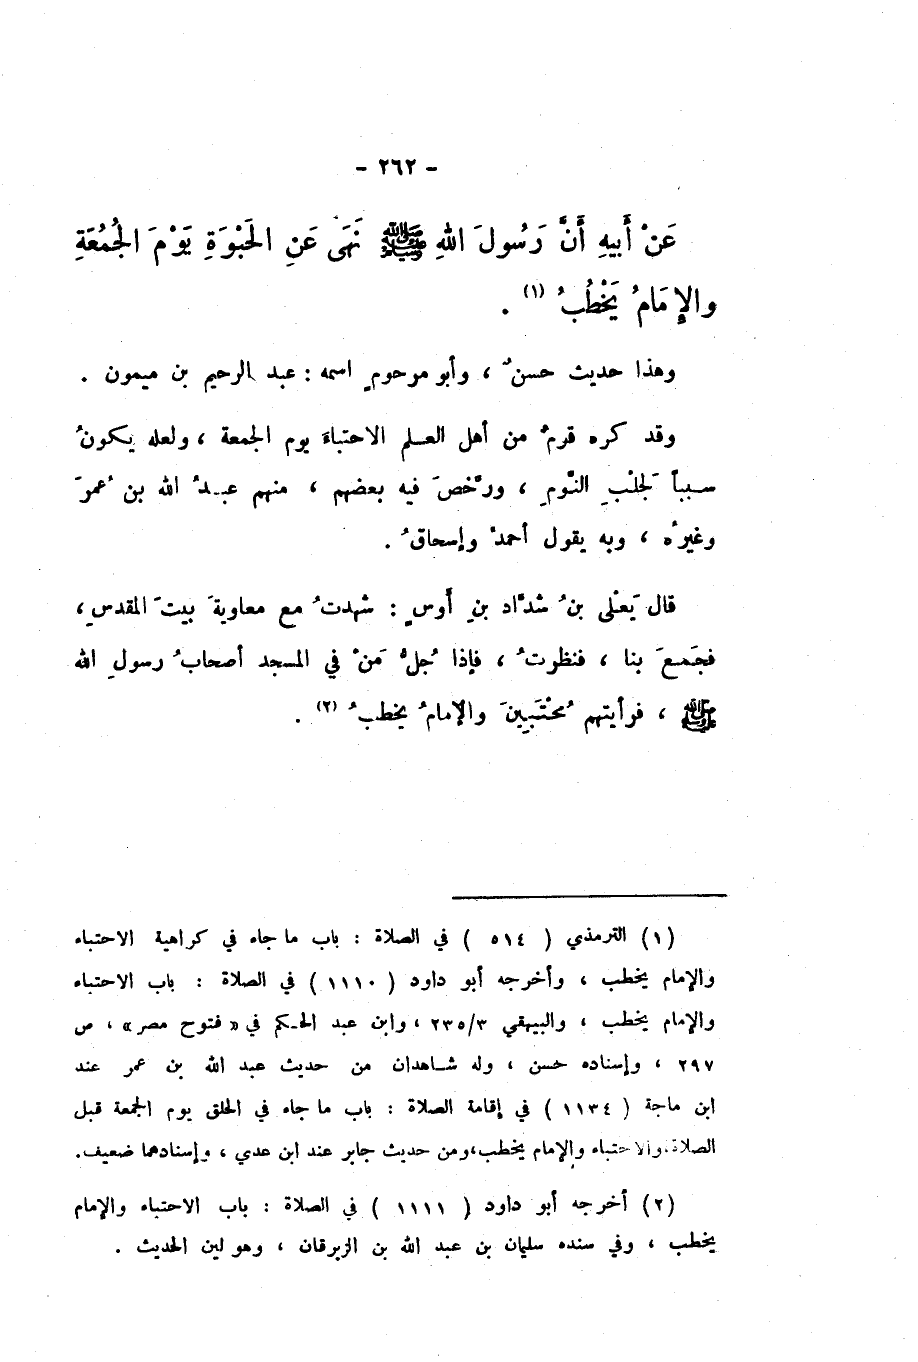 - ٢٦٢ -
عَنْ أَبيهِ أَنَّ رَسُولَ اللهِ ﷺ نَهَى عَنِ الحَبْوَةِ يَوْمَ الجُمُعَةِ
والإمَامُ يَخْطُبُ (١) .
وهذا حديث حسنٌ ، وأبو مرحومٍ اسمه : عبد الرحيم بن ميمون .
وقد كره قومٌ من أهل العلم الاحتباءَ يوم الجمعة ، ولعله يكونُ
سبباً لجَلْبِ النَّومِ ، ورخَّصَ فيه بعضهم ، منهم عبدُ الله بن عُمرَ
وغيرُه ، وبه يقول أحمدُ وإسحاقُ .
قال يَعْلى بنُ شدَّاد بنِ أَوسٍ : شهدتُ مع معاويةَ بيتَ المقدسِ ،
فجَمعَ بنا ، فنظرتُ ، فإذا جُلُّ مَنْ في المسجد أصحابُ رسولِ الله
ﷺ ، فرأيتهم مُحْتَبِينَ والإمامُ يخطبُ (٢) .
(١) الترمذي ( ٥١٤ ) في الصلاة : باب ما جاء في كراهية الاحتباء
والإمام يخطب ، وأخرجه أبو داود ( ١١١٠ ) في الصلاة : باب الاحتباء
والإمام يخطب ، والبيهقي ٢٣٥/٣ ، وابن عبد الحكم في « فتوح مصر » ، ص
٢٩٧ ، وإسناده حسن ، وله شاهدان من حديث عبد الله بن عمر عند
ابن ماجة ( ١١٣٤ ) في إقامة الصلاة : باب ما جاء في الحلق يوم الجمعة قبل
الصلاة والاحتباء والإمام يخطب،ومن حديث جابر عند ابن عدي ، وإسنادهما ضعيف.
(٢) أخرجه أبو داود ( ١١١١ ) في الصلاة : باب الاحتباء والإمام
يخطب ، وفي سنده سليمان بن عبد الله بن الزبرقان ، وهو لين الحديث .